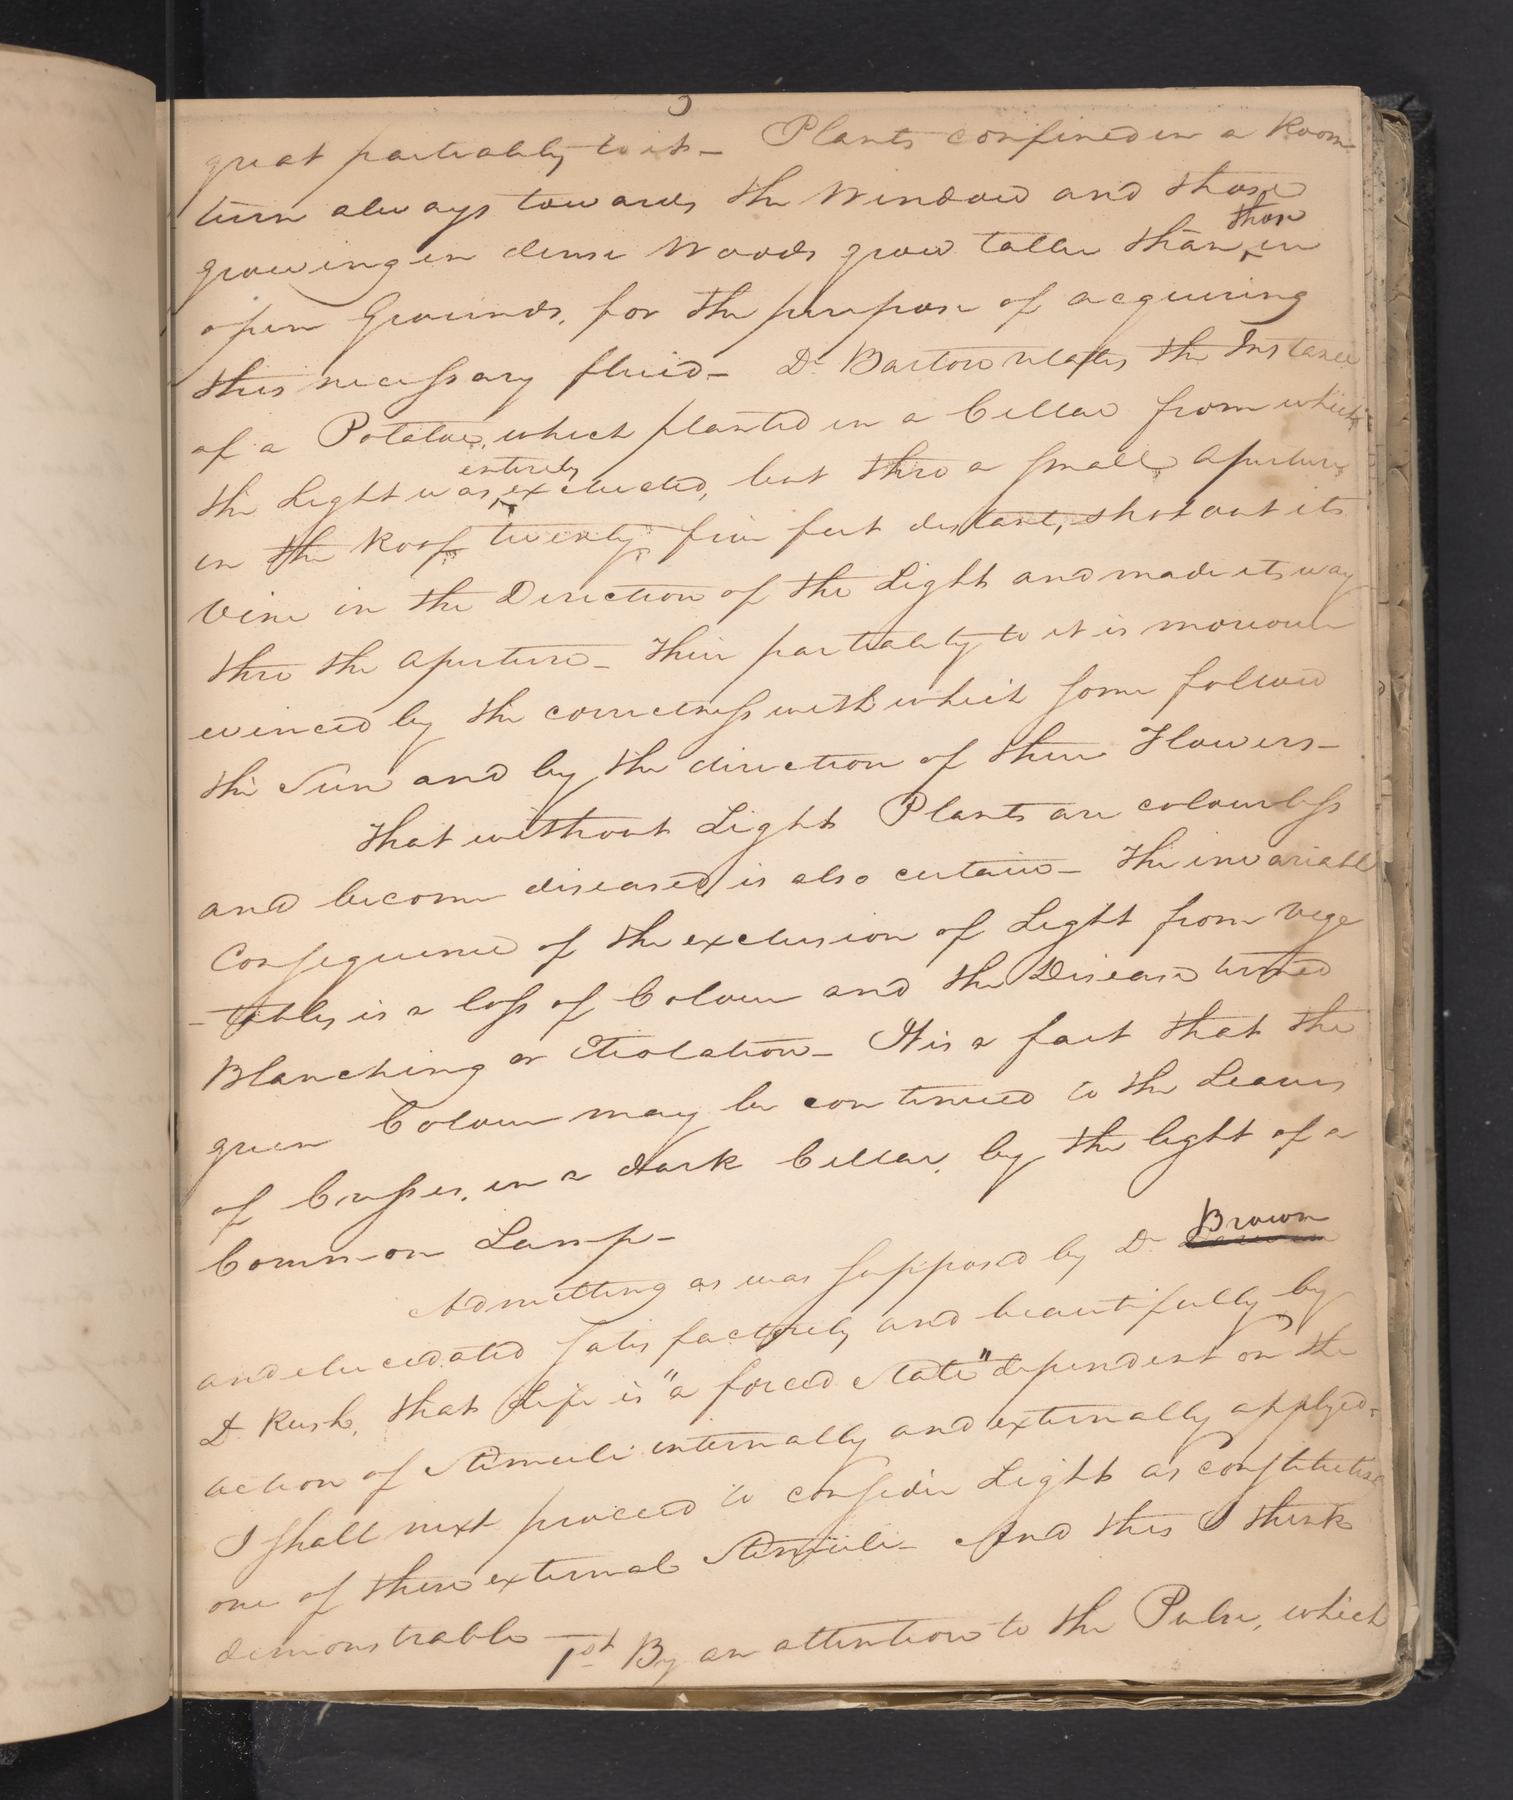 great partiality to it — Plants confined in a Room
turn always towards the Window and those
those
growing in dense Woods grow taller than in
open Grounds, for the purpose of acquiring
this necessary fluid — Dr Barton relates the Instance
of a Potatoe, which planted in a Cellar from which
entirely
the Light was excluded, but thro a small aperture
in the Roof twenty five feet distant, shot out its
Vine in the Direction of the Light and made its way
thro the aperture — Their partiality to it is moreover
evinced by the correctness with which some follow
the Sun and by the direction of their Flowers —
That without Light Plants are colourless
and become diseased is also certain — The invariable
Consequence of the exclusion of Light from Vege
-tables is a loss of Colour and the Disease termed
Blanching or Etiolation — It is a fact that the
green Colour may be continued to the Leaves
of Cresses, in a dark Cellar, by the light of a
Common Lamp —
Brown
Admitting as was supposed by Dr
and elucidated satisfactorily and beautifully by
Dr Rush, that Life is "a forced State" dependent on the
action of Stimuli internally and externally applyed —
I shall next proceed to consider Light as constituting
one of these external Stimuli — And this I think
demonstrable — 1st By an attention to the Pulse, which